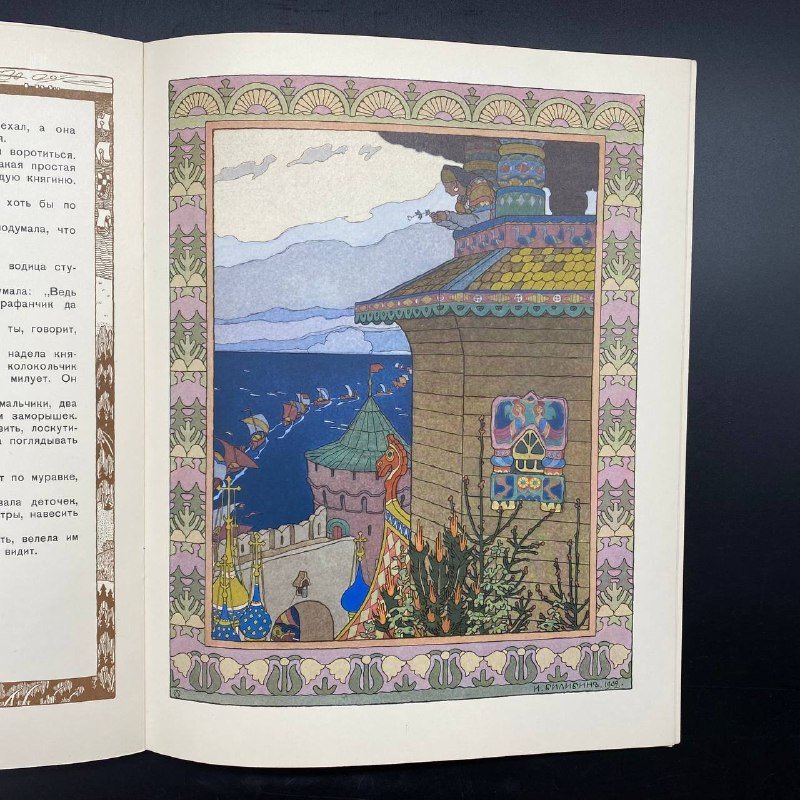 ехал, а она
я.
и воротиться.
акая простая
дую княгиню.
хоть бы по
подумала, что
водица сту-
мала: „Ведь
рафанчик да
ты, говорит,
надела кня-
колокольчик
милует. Он
мальчики, два
м заморышек.
вить, лоскути-
а поглядывать
т по муравке,
вала деточек,
тры, навесить
ть, велела им
видит.
И. БИЛИБИНЪ. 1902.